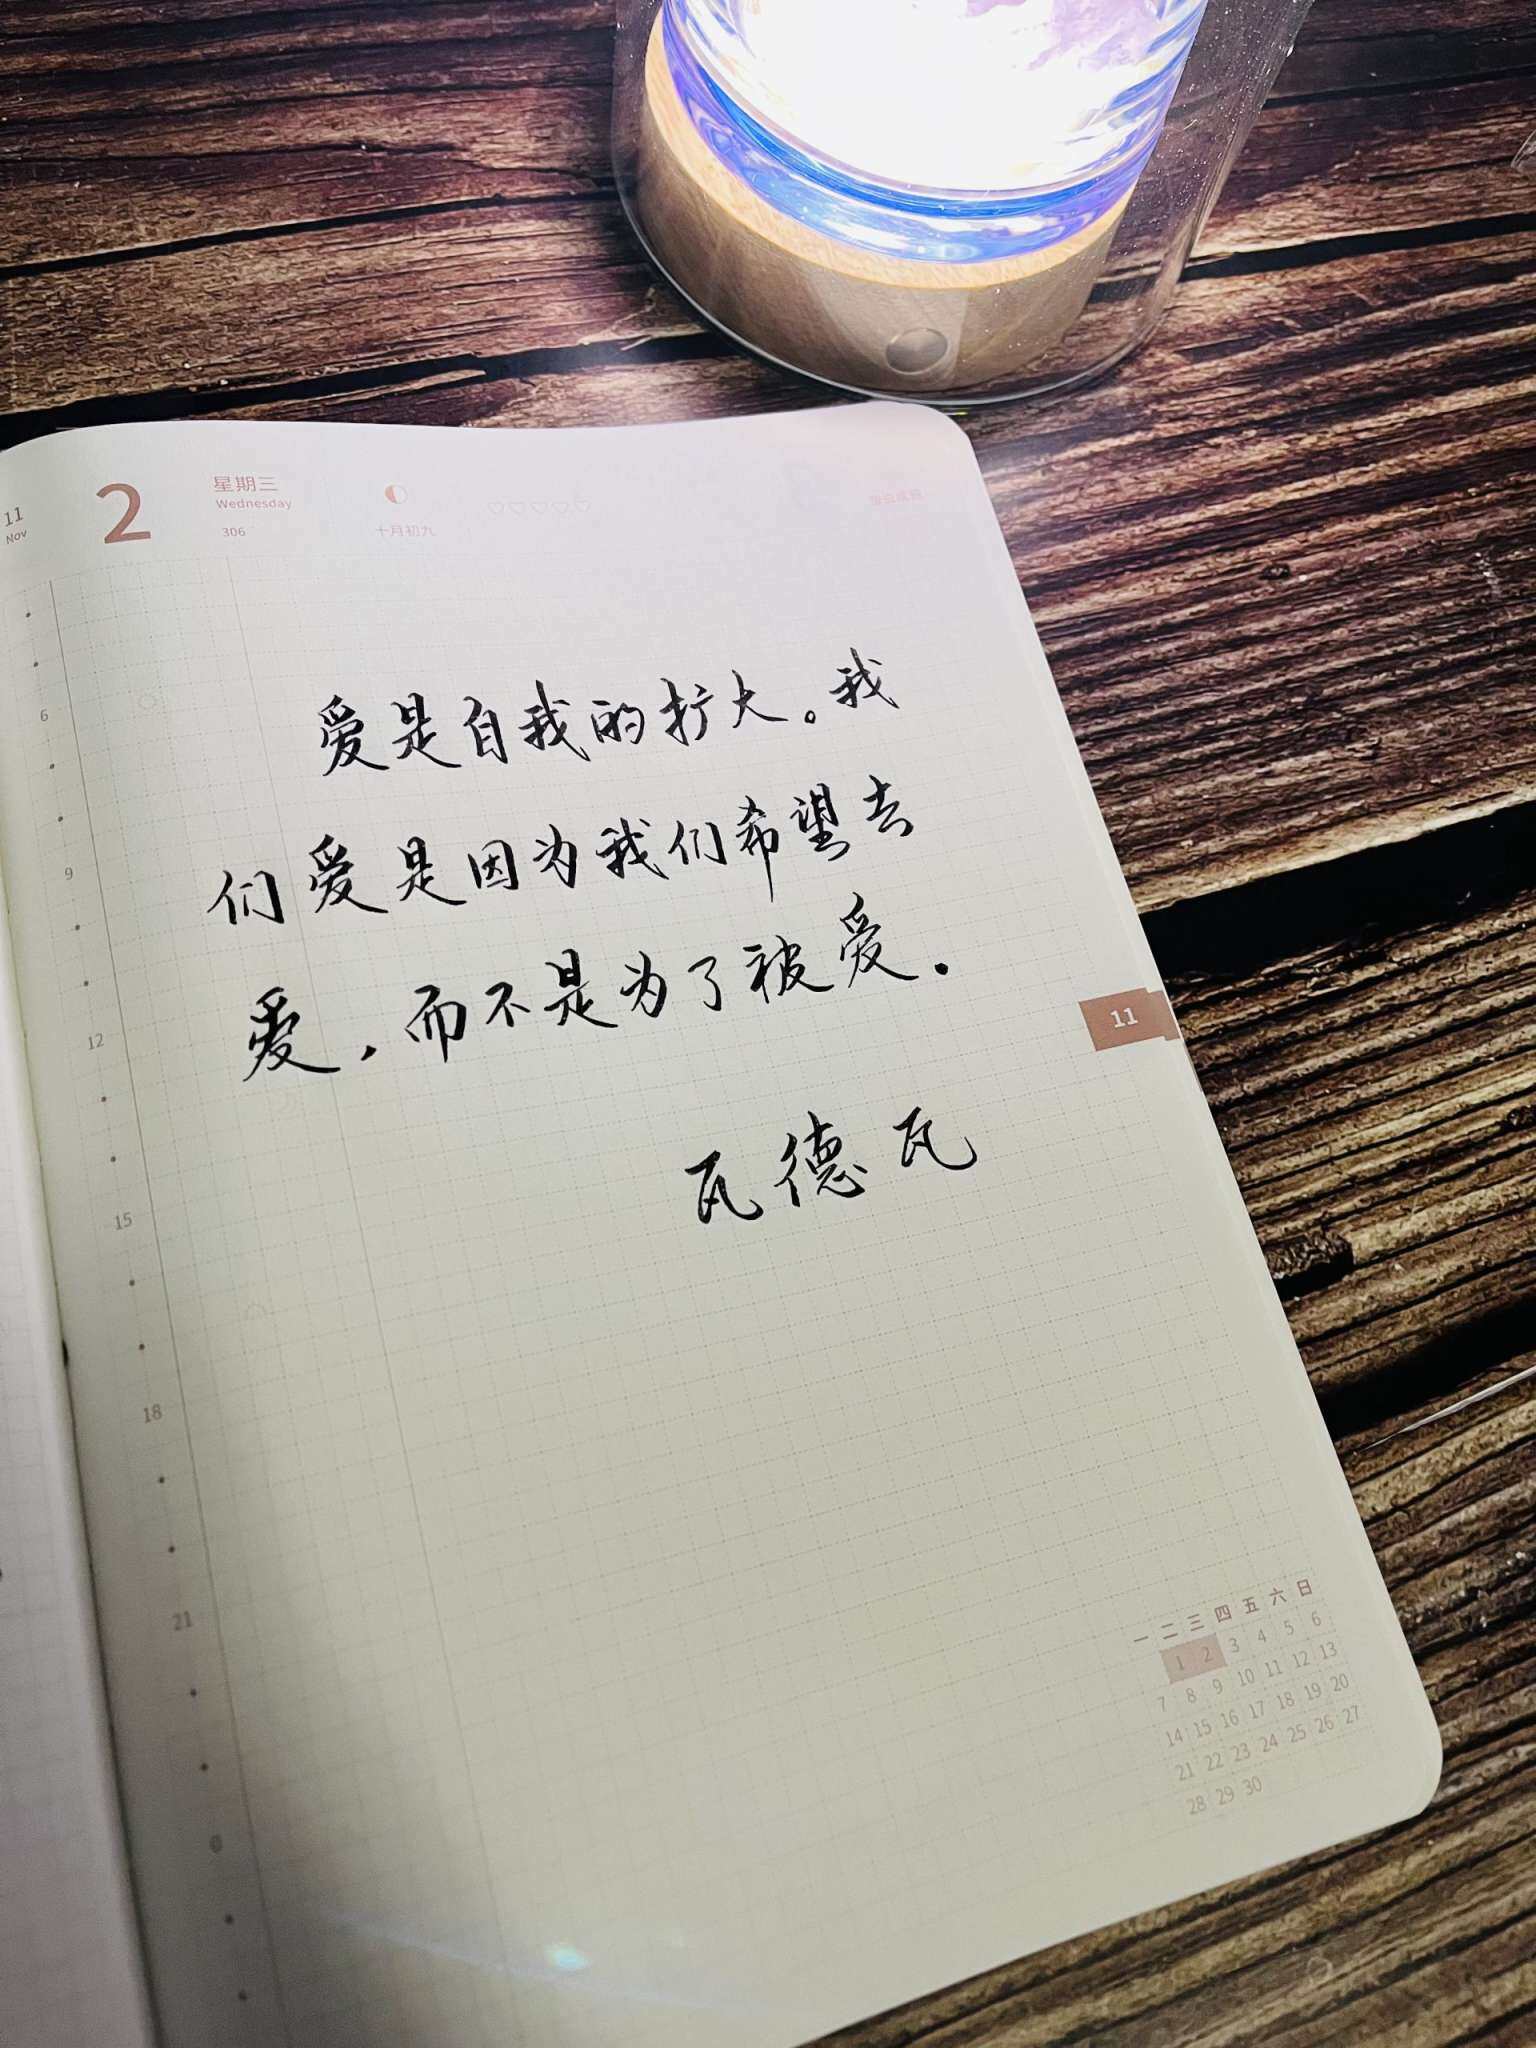 11
Nov
2
星期三
Wednesday
306
十月初九
爱是自我的扩大。我
们爱是因为我们希望去
爱,而不是为了被爱.
瓦德瓦
6
9
12
15
18
21
0
11
一 二 三 四 五 六 日
1 2 3 4 5 6
7 8 9 10 11 12 13
14 15 16 17 18 19 20
21 22 23 24 25 26 27
28 29 30